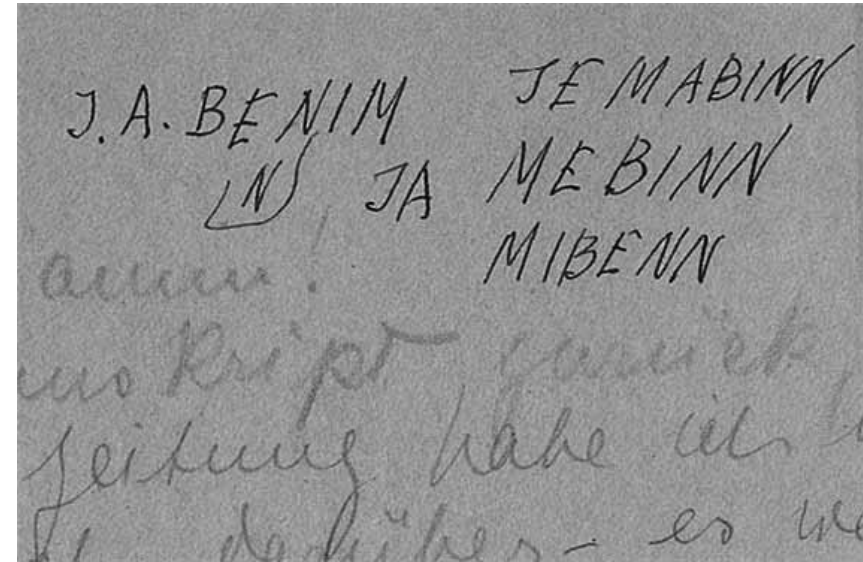 J.A. BENIM JE MABINN
(N) JA MEBINN
MIBENN
amm!
uskript zurück
Zeitung habe ich
darüber - es we